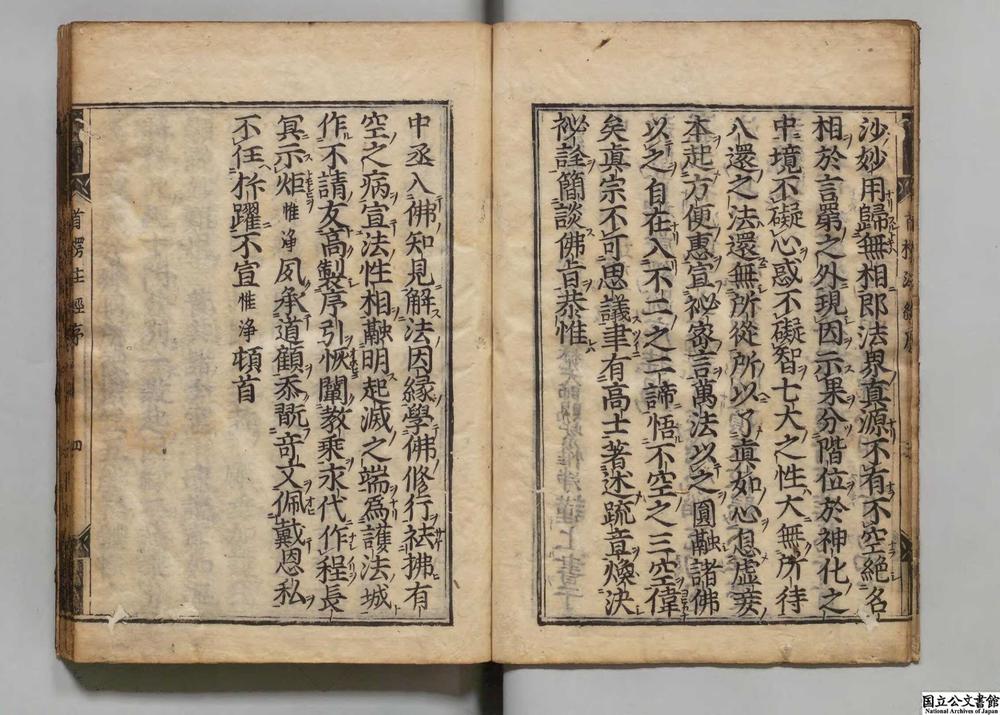 沙妙用歸無相即法界真源不有不空絶名
相於言第之外現因示果分階位於神化之
中境不礙心惑不礙智七大之性大無所待
八還之法還無所從所以了真如心息虛妄
本起方便惠宣祕密言萬法以之圓融諸佛
以之自在入不二之二諦悟不空之三空偉
矣真宗不可思議聿有高士著述疏章煥決
祕詮簡談佛旨恭惟
中丞入佛知見解法因縁學佛修行袪拂有
空之病宣法性相融明起滅之端為護法城
作不請友高製序引恢闡教乘永代作程長
冥示炬惟淨夙承道顧忝翫竒文佩戴恩私
不任抃躍不宣惟淨頓首
首楞嚴經序
首楞生經序
四
国立公文書館
National Archives of Japan